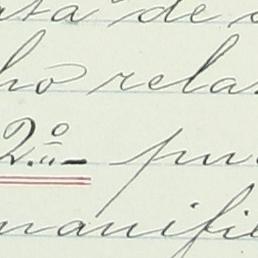 ata de
ho rela
2.º pu
manifie